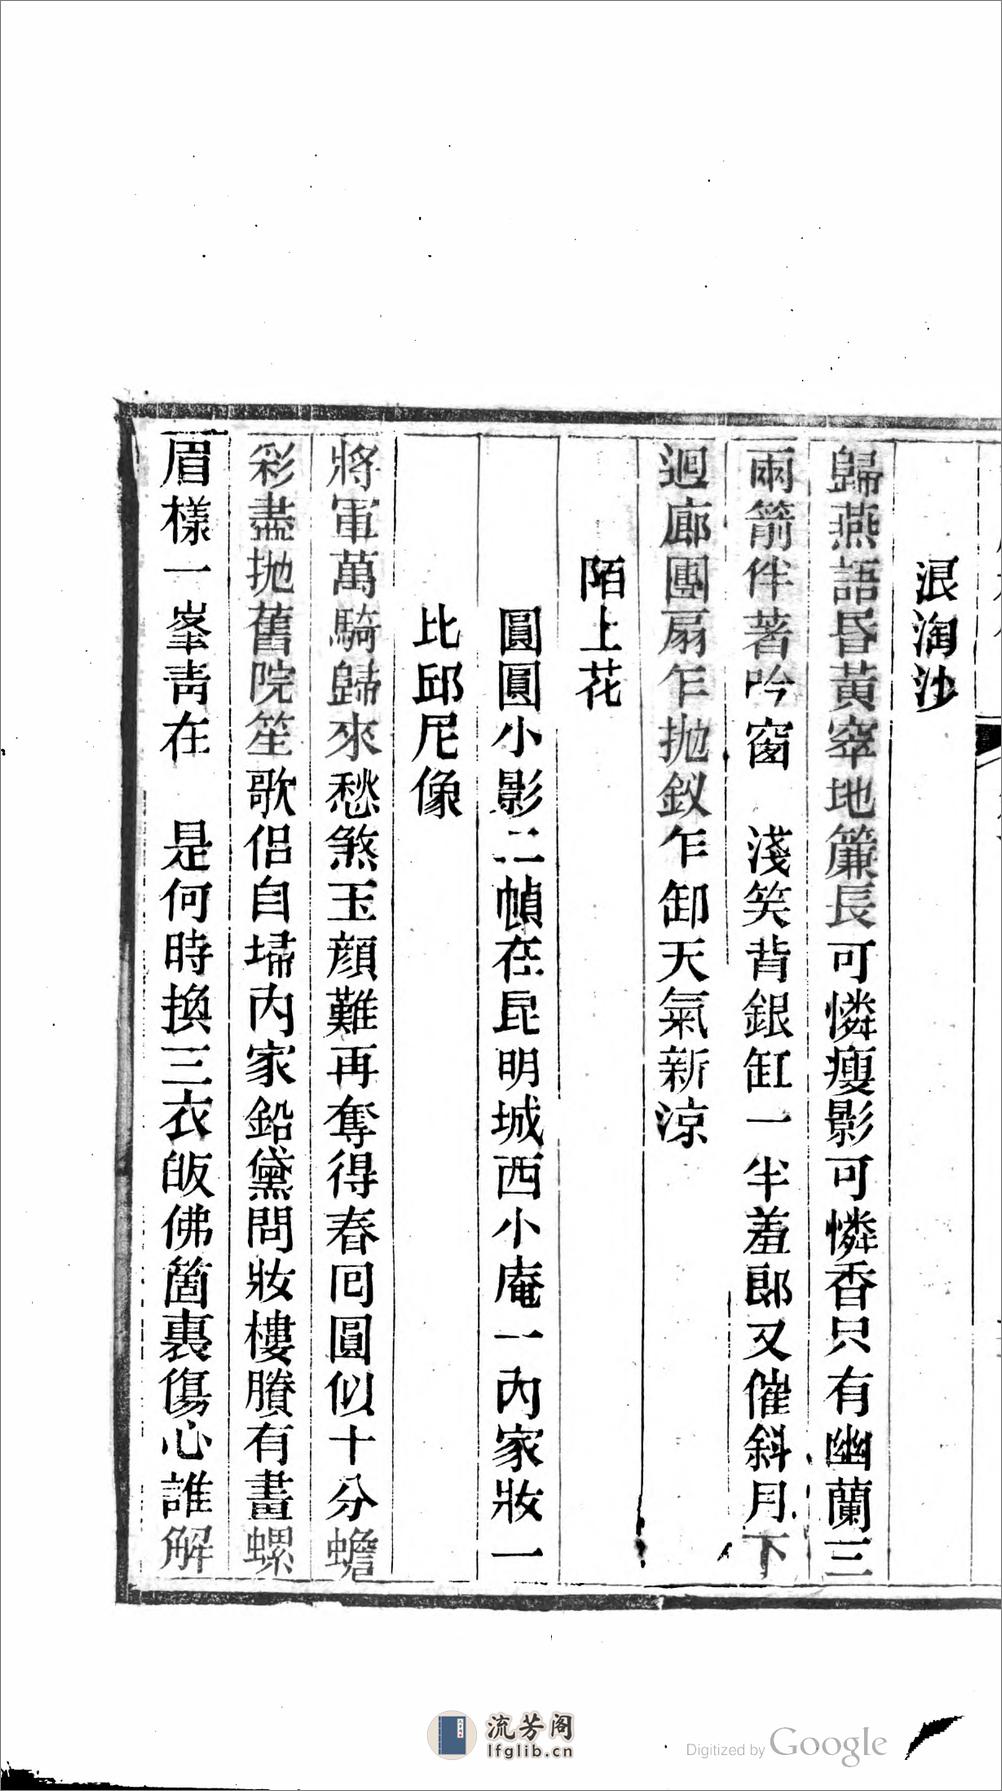 浪淘沙
歸燕語昏黃窣地簾長可憐瘦影可憐香只有幽蘭三
兩箭伴著吟窗　淺笑背銀缸一半羞郎又催斜月下
迴廊團扇乍拋釵乍卸天氣新涼
陌上花
圓圓小影二幀在昆明城西小庵一內家妝一
比邱尼像
將軍萬騎歸來愁煞玉顏難再奪得春回圓似十分蟾
彩盡拋舊院笙歌侶自埽內家鉛黛問妝樓賸有畫螺
眉樣一峯靑在　是何時換三衣皈佛箇裏傷心誰解
流芳阁
lfglib.cn
Digitized by Google